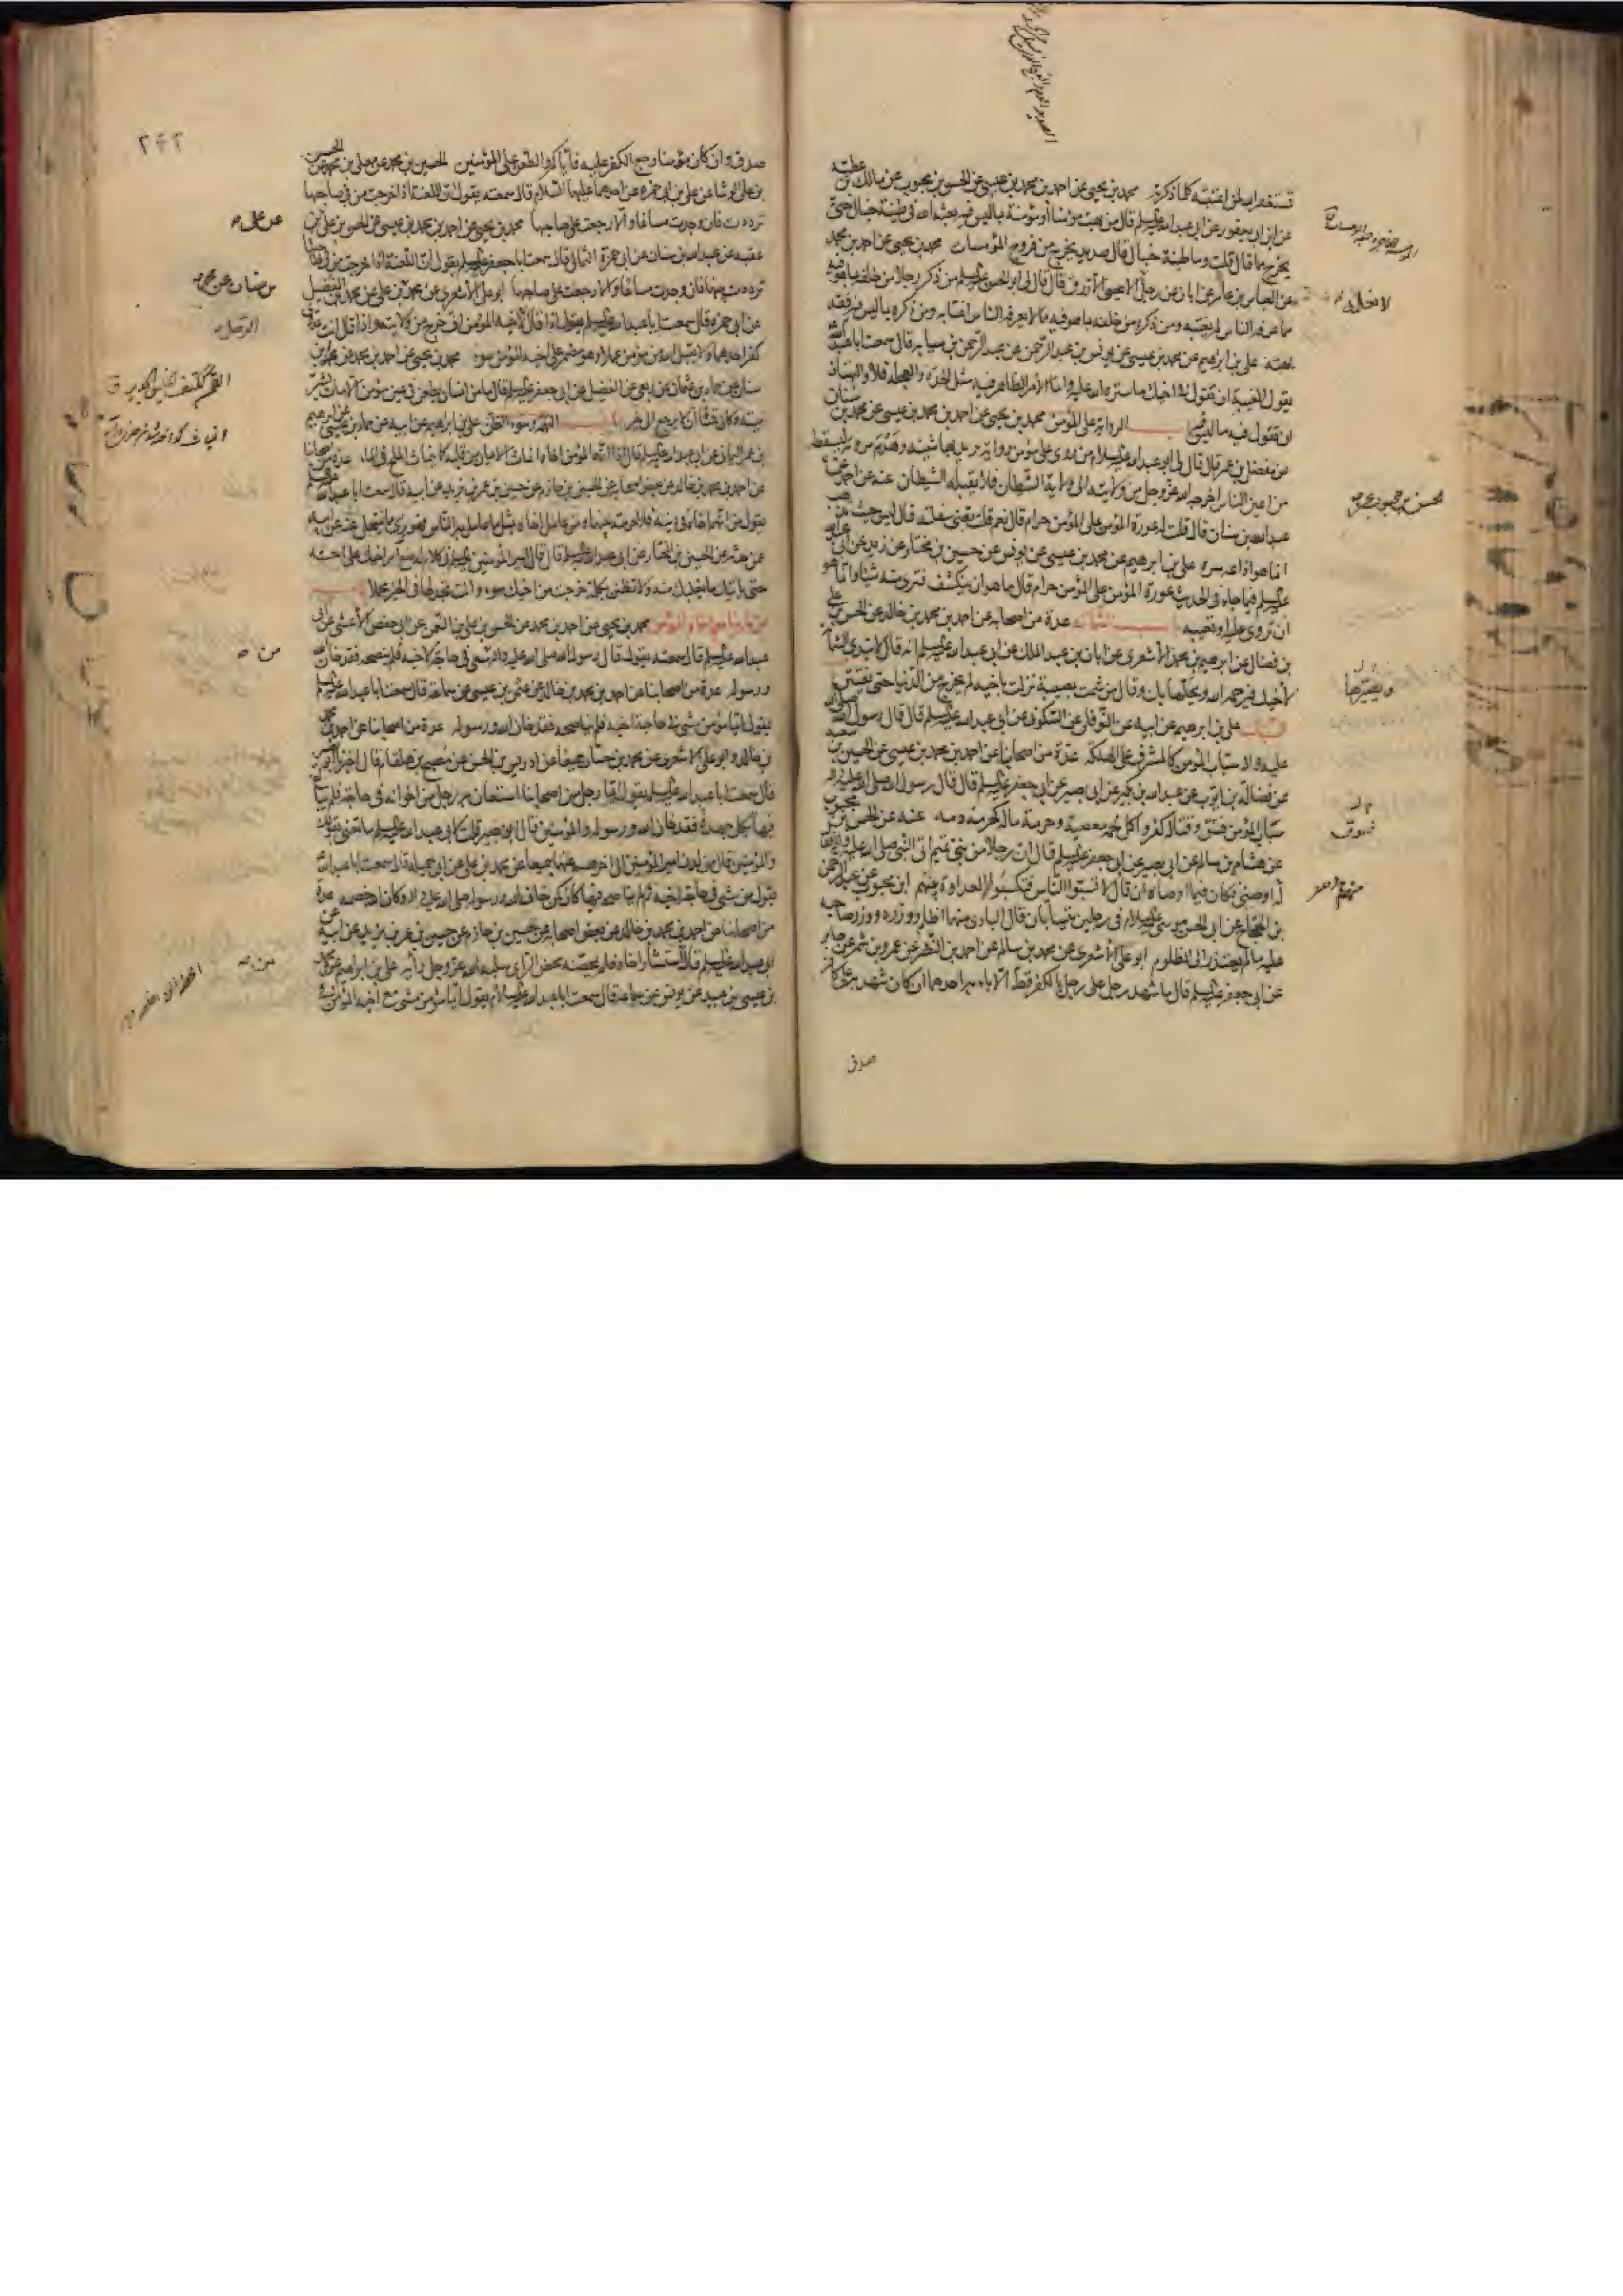 تستغفر الله لمن اغتبته كلما ذكرته محمد بن يحيى عن احمد بن محمد بن عيسى عن الحسن بن محبوب عن مالك بن عطيه
عن ابن ابي يعفور عن ابي عبد الله عليه السلم قال من بهت مؤمنا أو مؤمنة بما ليس فيه بعثه الله في طينة خبال حتى
يخرج مما قال قلت وما طينة خبال قال صديد يخرج من فروج المؤمسات محمد بن يحيى عن احمد بن محمد
عن العباس بن عامر عن ابان عن رجل لا نعلمه الا يحيى الازرق قال قال لى ابو الحسن عليه السلم من ذكر رجلا من خلفه بما هو فيه
مما عرفه الناس لم يغتبه ومن ذكره من خلفه بما هو فيه مما لا يعرفه الناس اغتابه ومن ذكره بما ليس فيه فقد
بهته علي بن ابرهيم عن محمد بن عيسى عن يونس بن عبد الرحمن عن عبد الرحمن بن سيابه قال سمعت ابا عبد الله
يقول الغيبة ان تقول في اخيك ما ستره الله عليه واما الأمر الظاهر فيه مثل الحدة والعجلة فلا والبهتان
ان تقول فيه ما ليس فيه باب الرواية على المؤمن محمد بن يحيى عن احمد بن محمد بن عيسى عن محمد بن سنان
عن مفضل بن عمر قال قال لي ابو عبد الله عليه السلام من روى على مؤمن رواية يريد بها شينه وهدم مروته ليسقط
من اعين الناس اخرجه الله عز وجل من ولايته الى ولاية الشيطان فلا يقبله الشيطان عنه عن احمد عن
عبد الله بن سنان قال قلت له عورة المؤمن على المؤمن حرام قال نعم قلت يعني سفلته قال ليس حيث تذهب
انما هو اذاعه سره علي بن ابرهيم عن محمد بن عيسى عن يونس عن حسين بن مختار عن زيد عن ابي عبد الله
عليه السلم فيما جاء في الحديث عورة المؤمن على المؤمن حرام قال ما هو ان ينكشف فترى منه شيئا وانما هو
ان تروى عليه او تعيبه باب الشماته عدة من اصحابنا عن احمد بن محمد بن خالد عن الحسن بن علي
بن فضال عن ابرهيم بن محمد الأشعري عن ابان بن عبد الملك عن ابي عبد الله عليه السلم انه قال لا تبدى الشماتة
لأخيك فيرحمه الله ويحلها بك وقال من شمت بمصيبة نزلت باخيه لم يخرج من الدنيا حتى يفتتن
السباب علي بن ابرهيم عن ابيه عن النوفلي عن السكوني عن ابي عبد الله عليه السلم قال قال رسول الله صلى الله
عليه واله سباب المؤمن كالمشرف على الهلكة عدة من اصحابنا عن احمد بن محمد بن عيسى عن الحسين بن سعيد
عن فضالة بن ايوب عن عبد الله بن بكير عن ابي بصير عن ابي جعفر عليه السلم قال قال رسول الله صلى الله عليه واله
سباب المؤمن فسق وقتاله كفر واكل لحمه معصية وحرمة ماله كحرمة دمه عنه عن الحسن بن محبوب
عن هشام بن سالم عن ابي بصير عن ابي جعفر عليه السلم قال ان رجلا من بني تميم اتى النبي صلى الله عليه واله فقال
له اوصني فكان فيما اوصاه ان قال لا تسبوا الناس فتكسبوا العداوة بينهم ابن محبوب عن عبد الرحمن
بن الحجاج عن ابي الحسن موسى عليه السلام في رجلين يتسابان قال البادى منهما اظلم ووزره ووزر صاحبه
عليه ما لم يعتذر الى المظلوم ابو علي الأشعري عن محمد بن سالم عن احمد بن النضر عن عمرو بن شمر عن جابر
عن ابي جعفر عليه السلم قال ما شهد رجل على رجل بالكفر قط الا باء به احدهما ان كان شهد به على كافر
صدق
الحسن بن محبوب عن
٢٤٢
صدق وان كان مؤمنا رجع الكفر عليه فاياكم والطعن على المؤمنين الحسين بن محمد عن معلى بن محمد عن الحسن
بن علي الوشا عن علي بن ابي حمزه عن احدهما عليهما السلام قال سمعته يقول ان اللعنة اذا خرجت من في صاحبها
ترددت فان وجدت مساغا والا رجعت على صاحبها محمد بن يحيى عن احمد بن محمد بن عيسى عن الحسن بن علي بن
عقبه عن عبد الله بن سنان عن ابي حمزة الثمالي قال سمعت ابا جعفر عليه السلم يقول ان اللعنة اذا خرجت من في صاحبها
ترددت بينهما فان وجدت مساغا والا رجعت على صاحبها ابو علي الأشعري عن محمد بن علي عن محمد بن الفضيل
عن ابي حمزه قال سمعت ابا عبد الله عليه السلم يقول اذا قال الرجل لأخيه المؤمن اف خرج من ولايته واذا قال انت عدوى
كفر احدهما ولا يقبل الله من مؤمن عملا وهو مضمر على اخيه المؤمن سوء محمد بن يحيى عن احمد بن محمد عن محمد بن
سنان عن حماد بن عثمان عن ربعي عن الفضيل عن ابي جعفر عليه السلم قال ما من انسان يطعن في عين مؤمن الا مات بشر
ميتة وكان قمنا أن لا يرجع الى خير باب التهمة وسوء الظن علي بن ابرهيم عن ابيه عن حماد بن عيسى عن ابرهيم
بن عمر اليماني عن ابي عبد الله عليه السلم قال اذا اتهم المؤمن اخاه انماث الايمان من قلبه كما ينماث الملح في الماء عدة من اصحابنا
عن احمد بن محمد بن خالد عن بعض اصحابه عن الحسين بن حازم عن حسين بن عمر بن يزيد عن ابيه قال سمعت ابا عبد الله عليه السلم
يقول من اتهم اخاه في دينه فلا حرمة بينهما ومن عامل اخاه بمثل ما عامل به الناس فهو برئ مما ينتحل عنه عن ابيه
عن حدثه عن الحسين بن المختار عن ابي عبد الله عليه السلم قال قال امير المؤمنين عليه السلم في كلام له ضع امر اخيك على احسنه
حتى ياتيك ما يغلبك منه ولا تظنن بكلمة خرجت من اخيك سوء وانت تجد لها في الخير محملا باب
من لم يناصح اخاه المؤمن محمد بن يحيى عن احمد بن محمد عن الحسن بن علي بن النعمن عن ابي حفص الأعشى عن ابي
عبد الله عليه السلم قال سمعته يقول قال رسول الله صلى الله عليه واله من سعى في حاجة لاخيه فلم ينصحه فقد خان الله
ورسوله عدة من اصحابنا عن احمد بن محمد بن خالد عن عثمن بن عيسى عن سماعة قال سمعت ابا عبد الله عليه السلم
يقول ايما مؤمن مشى في حاجة اخيه فلم يناصحه فقد خان الله ورسوله عدة من اصحابنا عن احمد بن محمد
بن خالد وابو علي الاشعري عن محمد بن حسان جميعا عن ادريس بن الحسن عن مصبح بن هلقام قال اخبرنا ابو بصير
قال سمعت ابا عبد الله عليه السلم يقول ايما رجل من اصحابنا استعان به رجل من اخوانه في حاجة فلم يبالغ
فيها بكل جهده فقد خان الله ورسوله والمؤمنين قال ابو بصير قلت لابي عبد الله عليه السلم ما تعني بقولك
والمؤمنين قال من لدن امير المؤمنين الى اخرهم عنهما جميعا عن محمد بن علي عن ابي جميله قال سمعت ابا عبد الله
يقول من مشى في حاجة اخيه ثم لم يناصحه فيها كان كمن خان الله ورسوله صلى الله عليه واله وكان الله خصمه عدة
من اصحابنا عن احمد بن محمد بن خالد عن بعض اصحابه عن حسين بن حازم عن حسين بن عمر بن يزيد عن ابيه عن
ابي عبد الله عليه السلم قال من استشار اخاه فلم يمحضه محض الراى سلبه الله عز وجل رأيه علي بن ابراهيم عن محمد
بن عيسى بن عبيد عن يونس عن سماعة قال سمعت ابا عبد الله عليه السلام يقول ايما مؤمن مشى مع اخيه المؤمن في
عن علي